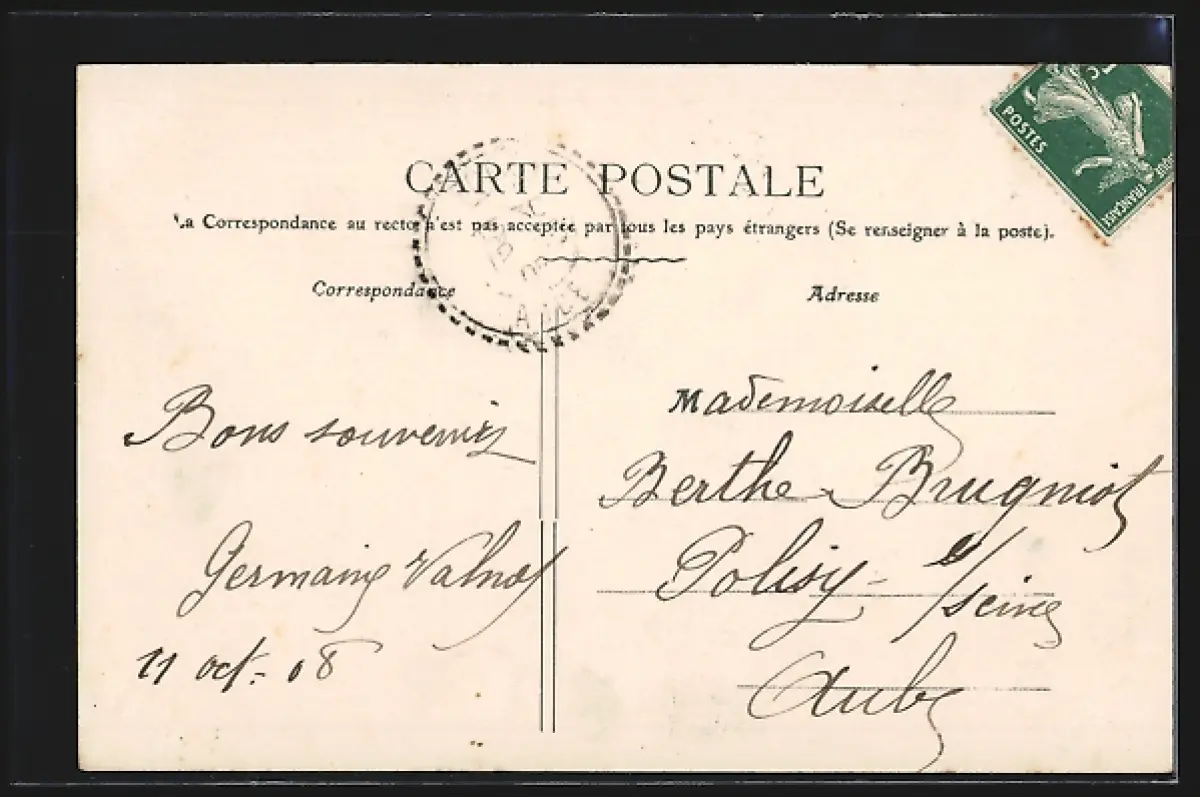 CARTE POSTALE
La Correspondance au recto n'est pas acceptée par tous les pays étrangers (Se renseigner à la poste).
Correspondance
Adresse
POSTES
Bons souvenirs
Germaine
11 oct. 08
Mademoiselle
Berthe Brugniot
Polisy s/
Seine
Aube